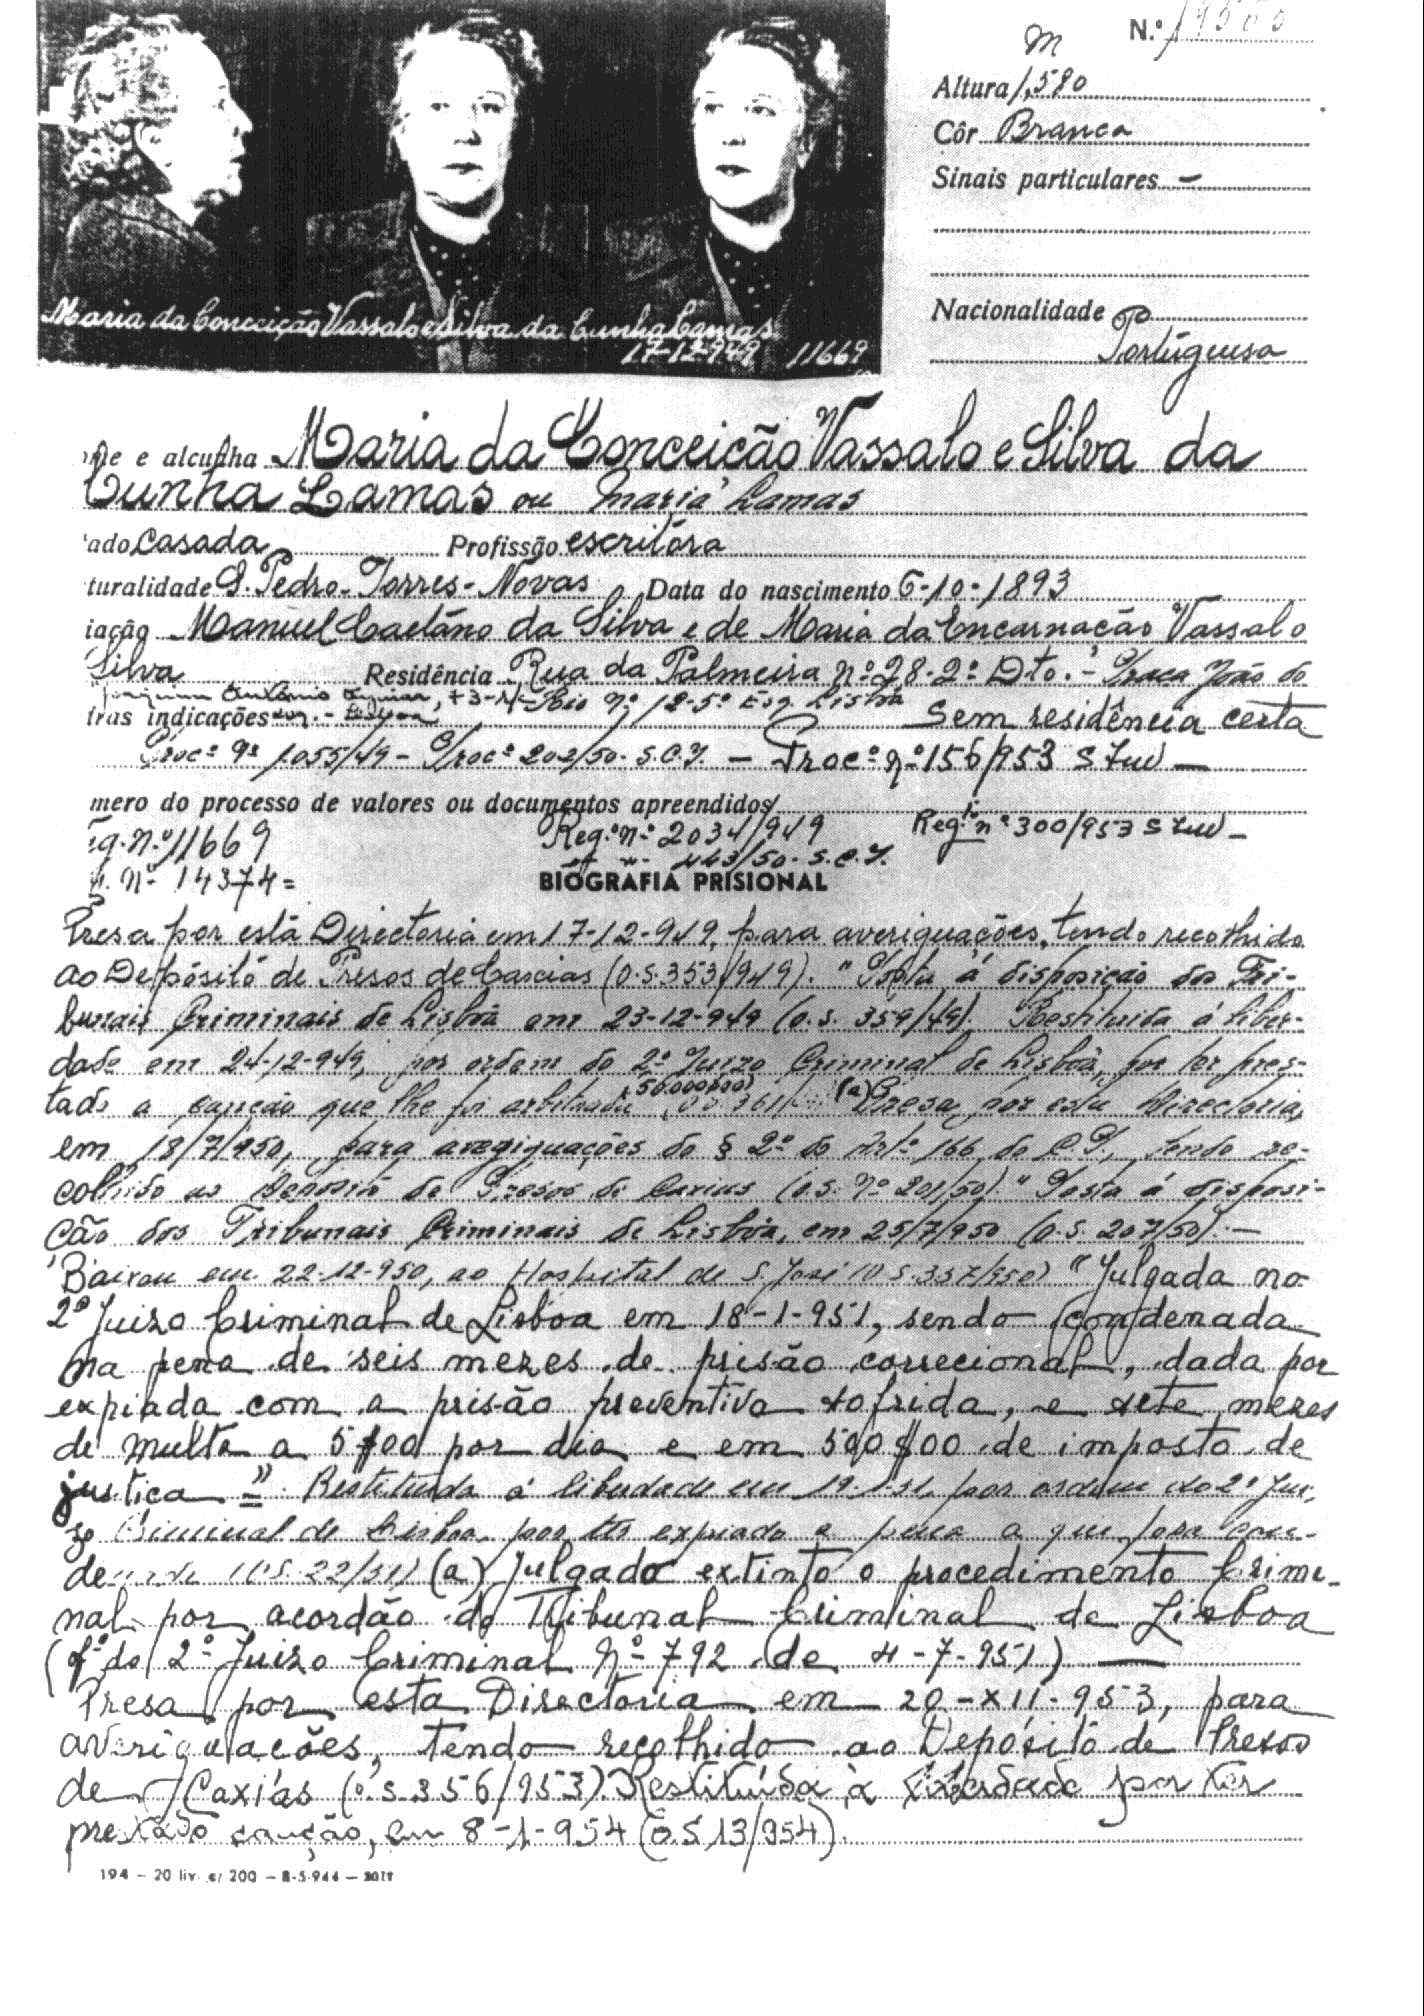 N.º
m
Altura 1,580
Côr Branca
Sinais particulares —
Nacionalidade
Portuguesa
Maria da Conceição Vassalo e Silva da Cunha Lamas
17-12-949 11669
me e alcunha Maria da Conceição Vassalo e Silva da
Cunha Lamas ou Maria Lamas
ado casada Profissão escritora
turalidade S. Pedro-Torres-Novas Data do nascimento 6-10-1893
iação Manuel Caetano da Silva e de Maria da Encarnação Vassalo
Silva Residência Rua da Palmeira nº 28-2º Dto. - Praça João do
Rio Nº 12-5º Esq. Lisboa
tras indicações Sem residência certa
Procº 1.055/49 - Procº 202/50 - S.C.I. — Procº nº 156/953 S Inv —
mero do processo de valores ou documentos apreendidos
Reg.º nº 300/953 S Inv —
ig. n.º 11669 Reg.º n.º 2034/949
" " 443/50 - S.C.I.
Nº 14374=
BIOGRAFIA PRISIONAL
Presa por está Directoria em 17-12-949, para averiguações, tendo recolhido
ao Depósito de Presos de Caxias (O.S. 353/949). "Posta á disposição dos Tri-
bunais Criminais de Lisboa em 23-12-949 (O.S. 359/49). Restituida á liber-
dade em 24-12-949, por ordem do 2º Juizo Criminal de Lisboa, por ter pres-
tado a caução que lhe foi arbitrada (a) Presa por esta Directoria,
em 18/7/950, para averiguações do § 2º do Artº 166 do C.P., tendo re-
colhido ao Depósito de Presos de Caxias (O.S. Nº 201/50) "Posta á disposi-
ção dos Tribunais Criminais de Lisboa, em 25/7/950 (O.S. 207/50). —
Baixou em 22-12-950, ao Hospital de S. José (O.S. 357/950) "Julgada no
2º Juizo Criminal de Lisboa em 18-1-951, sendo condenada
na pena de seis mezes de prisão correcional, dada por
expiada com a prisão preventiva sofrida, e sete mezes
de multa a 5$00 por dia e em 500$00 de imposto de
justiça =" Restituida á liberdade em 19-1-51, por ordem do 2º Jui-
zo Criminal de Lisboa, por ter expiado a pena a que fora con-
denada (O.S. 22/51) (a) Julgado extinto o procedimento Crimi-
nal por acordão do Tribunal Criminal de Lisboa
(Of.º do 2º Juizo Criminal Nº 792 de 4-7-951) —
Presa por esta Directoria em 20-XII-953, para
averiguações, tendo recolhido ao Depósito de Presos
de Caxias (O.S. 356/953). Restituída à liberdade por ter
prestado caução, em 8-1-954 (O.S 13/954).
194 — 20 liv. c/ 200 — 8-5-944